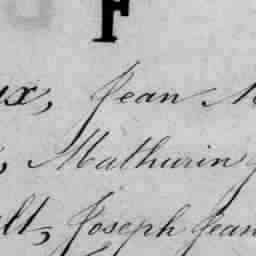 F
ux, Jean M
, Mathurin
lt, Joseph Jean